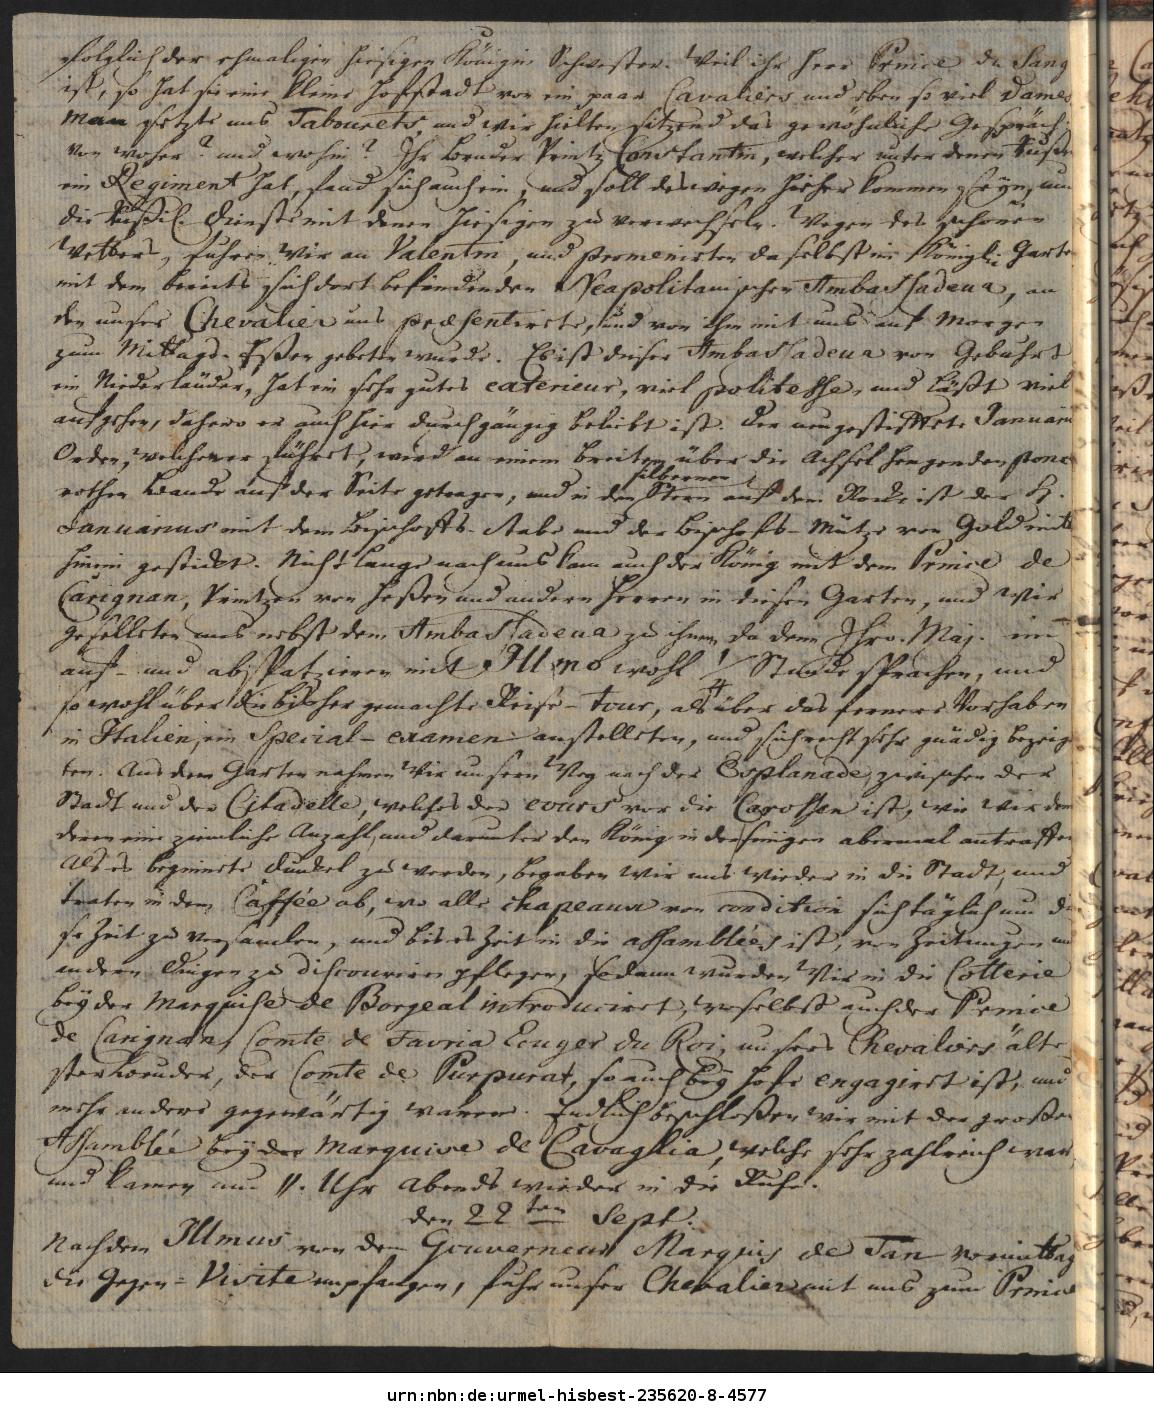 folglich der ehmaligen hiesigen Königin Schwester. Weil ihr Herr Prince du Sang
ist, so hat sie eine kleine Hofstadt von ein paar Cavaliers und eben so viel Dames
Man setzte uns Tabourets, und wir hielten sitzend das gewöhnliche Gespräch
von woher? und wohin? Ihr Bruder Printz Constantin, welcher unter denen
ein Regiment hat, fand sich auch ein, und soll deswegen hieher kommen seyn, um
die Dienste mit denen hiesigen zu verwechseln. Wegen des schönen
Wetters, fuhren Wir an Valentin, und promenirten daselbst im Königl. Garte
mit dem bereits sich dort befindenden Neapolitanischen Ambassadeur, an
den unser Chevalier uns præsentirete, und von ihm mit uns auf Morgen
zum Mittags-Eßen gebeten wurde. Es ist dieser Ambassadeur von Gebuhrt
ein Niederländer, hat ein sehr gutes exterieur, viel politesse, und läßt viel
aufgehen, dahero er auch hier durchgängig beliebt ist. Der neugestifftete Januarii
Orden, welchen er führet, wird an einem breiten über die Achsel hengenden ponc
rothen Bande auf der Seite getragen, und in dem silbernen Stern auf dem Rocke ist der H.
Januarius mit dem Bischoffs-Stabe und der Bischofs-Mütze von Gold mit
hinein gestickt. Nicht lange nach uns kam auch der König mit dem Prince de
Carignan, Printzen von Heßen und andern Herren in diesen Garten, und Wir
geselleten uns nebst dem Ambassadeur zu ihnen, da denn Ihro. Maj. im
auf- und abspatzieren mit Illmo wohl 1/4 Stunde sprachen, und
sowohl über die bisher gemachte Reise-tour, als über das fernere Vorhaben
in Italien, ein Special-examen anstelleten, und sich recht sehr gnädig bezeig
ten. Aus dem Garten nahmen Wir unsern Weg nach der Esplanade, zwischen der
Stadt und der Citadelle, welches der cours vor die Carossen ist, wie wir denn
deren eine ziemliche Anzahl, und darunter den König in der seinigen abermal antraffen
Als es beginnete dunkel zu werden, begaben Wir uns wieder in die Stadt, und
traten in dem Caffée ab, wo alle chapeaux von condition sich täglich um die
se Zeit zu versamlen, und bis es Zeit in die assamblées ist, von Zeitungen und
andern Dingen zu discouriren pflegen, sodann wurden Wir in die Cotterie
bey der Marquise de Borgeal introduciret, woselbst auch der Prince
de Carignan, Comte de Favria Ecuyer du Roi, unsers Chevaliers älte
ster Bruder, der Comte de Purpurat, so auch bey Hofe engagiret ist, und
mehr andere gegenwärtig waren. Endlich beschloßen wir mit der großen
Assamblée bey der Marquise de Cavaglia, welche sehr zahlreich war,
und kamen um 11. Uhr Abends wieder in die Ruhe.
den 22ten Sept.
Nachdem Illmus von dem Gouverneur Marquis de Tan vormittag
die Gegen-Visite empfangen, fuhr unser Chevalier mit uns zum Prince
urn:nbn:de:urmel-hisbest-235620-8-4577